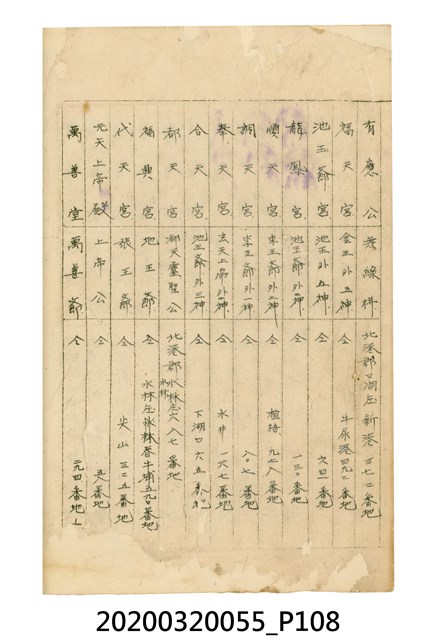 有應公 無緣桝 北港郡口湖庄新港三七二番地
福天宮 金王外五神 仝 牛尿港四九二番地
池王爺 池王外五神 仝 六四一番地
龍鳳宮 池王爺外二神 仝 一三〇番地
順天宮 李王爺外二神 仝 檳榔 九七八番地
朝天宮 李王爺外一神 仝 八〇七番地
奉天宮 玄天上帝外一神 仝 水井 一六七番地
合天宮 池王爺外三神 仝 下湖口 六五番地
都天宮 都天靈聖公 北港郡水林庄水林六八七番地
福興宮 地王爺 仝 水林庄水林番牛埔五九〇番地
代天宮 張王爺 仝 尖山三二五番地
元天上帝殿 上帝公 仝 五八番地
萬善堂 萬善爺 仝 二九四番地ノ一
20200320055_P108